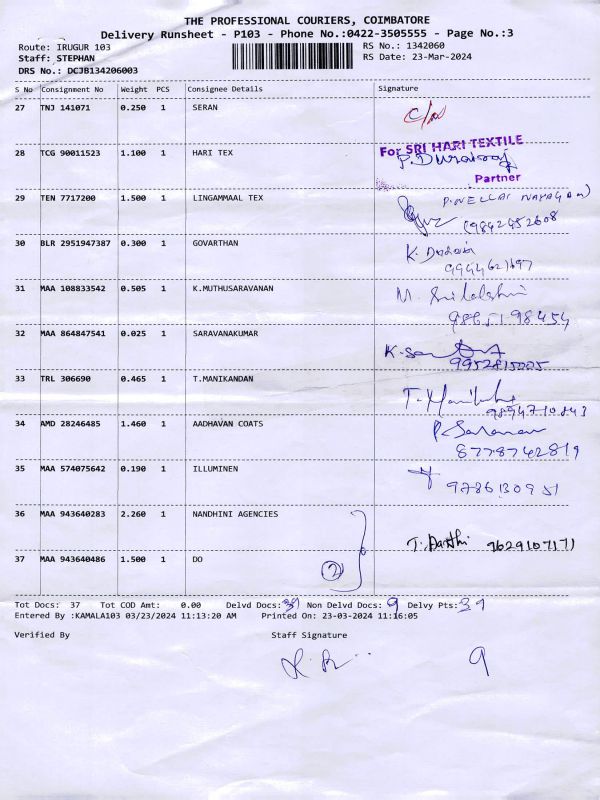 THE PROFESSIONAL COURIERS, COIMBATORE
Delivery Runsheet - P103 - Phone No.:0422-3505555 - Page No.:3
Route: IRUGUR 103 RS No.: 1342060
Staff: STEPHAN RS Date: 23-Mar-2024
DRS No.: DCJB134206003
S No Consignment No Weight PCS Consignee Details Signature
27 TNJ 141071 0.250 1 SERAN
28 TCG 90011523 1.100 1 HARI TEX For SRI HARI TEXTILE
P. Durairaj
Partner
29 TEN 7717200 1.500 1 LINGAMMAAL TEX P.NELLAI NAYAGAM
9842452608
30 BLR 2951947387 0.300 1 GOVARTHAN K.
31 MAA 108833542 0.505 1 K.MUTHUSARAVANAN M.
9865198454
32 MAA 864847541 0.025 1 SARAVANAKUMAR
9952815005
33 TRL 306690 0.465 1 T.MANIKANDAN
9894710843
34 AMD 28246485 1.460 1 AADHAVAN COATS P. Saranan
8778742819
35 MAA 574075642 0.190 1 ILLUMINEN 9786130951
36 MAA 943640283 2.260 1 NANDHINI AGENCIES
T. 9629107171
37 MAA 943640486 1.500 1 DO 2
Tot Docs: 37 Tot COD Amt: 0.00 Delvd Docs: Non Delvd Docs: 9 Delvy Pts:
Entered By :KAMALA103 03/23/2024 11:13:20 AM Printed On: 23-03-2024 11:16:05
Verified By Staff Signature
9